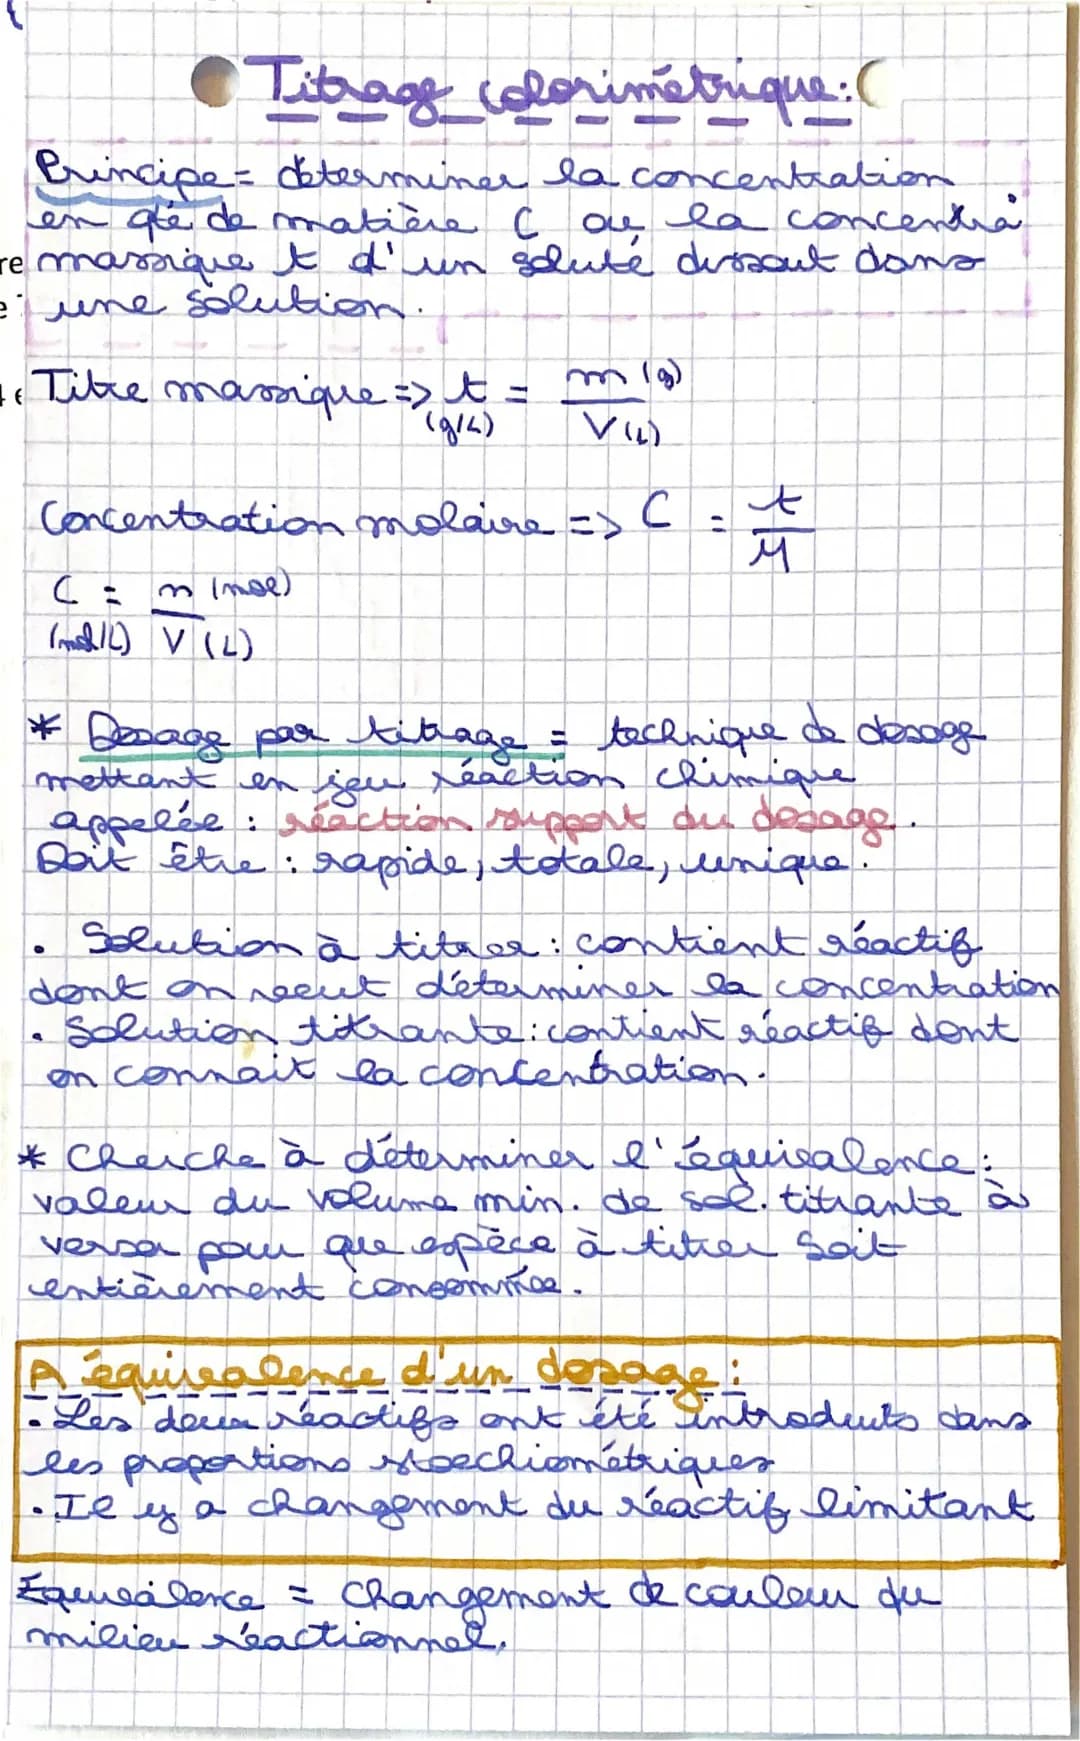 Titrage colorimétrique :
Principe = déterminer la concentration
en qté de matière C ou la concentra°
massique t d'un soluté dissout dans
une solution.
Titre massique => t = m (g)
(g/L) V (L)
Concentration molaire => C = t
M
C = n (mol)
(mol/L) V (L)
* Dosage par titrage = technique de dosage
mettant en jeu réaction chimique
appelée : réaction support du dosage.
Doit être : rapide, totale, unique.
• Solution à titrer : contient réactif
dont on veut déterminer la concentration
• Solution titrante : contient réactif dont
on connait la concentration.
* Cherche à déterminer l'équivalence :
valeur du volume min. de sol. titrante à
verser pour que espèce à titrer soit
entièrement consommée.
A équivalence d'un dosage :
• Les deux réactifs ont été introduits dans
les proportions stoechiométriques
• Il y a changement du réactif limitant
Équivalence = Changement de couleur du
milieu réactionnel.
re
e